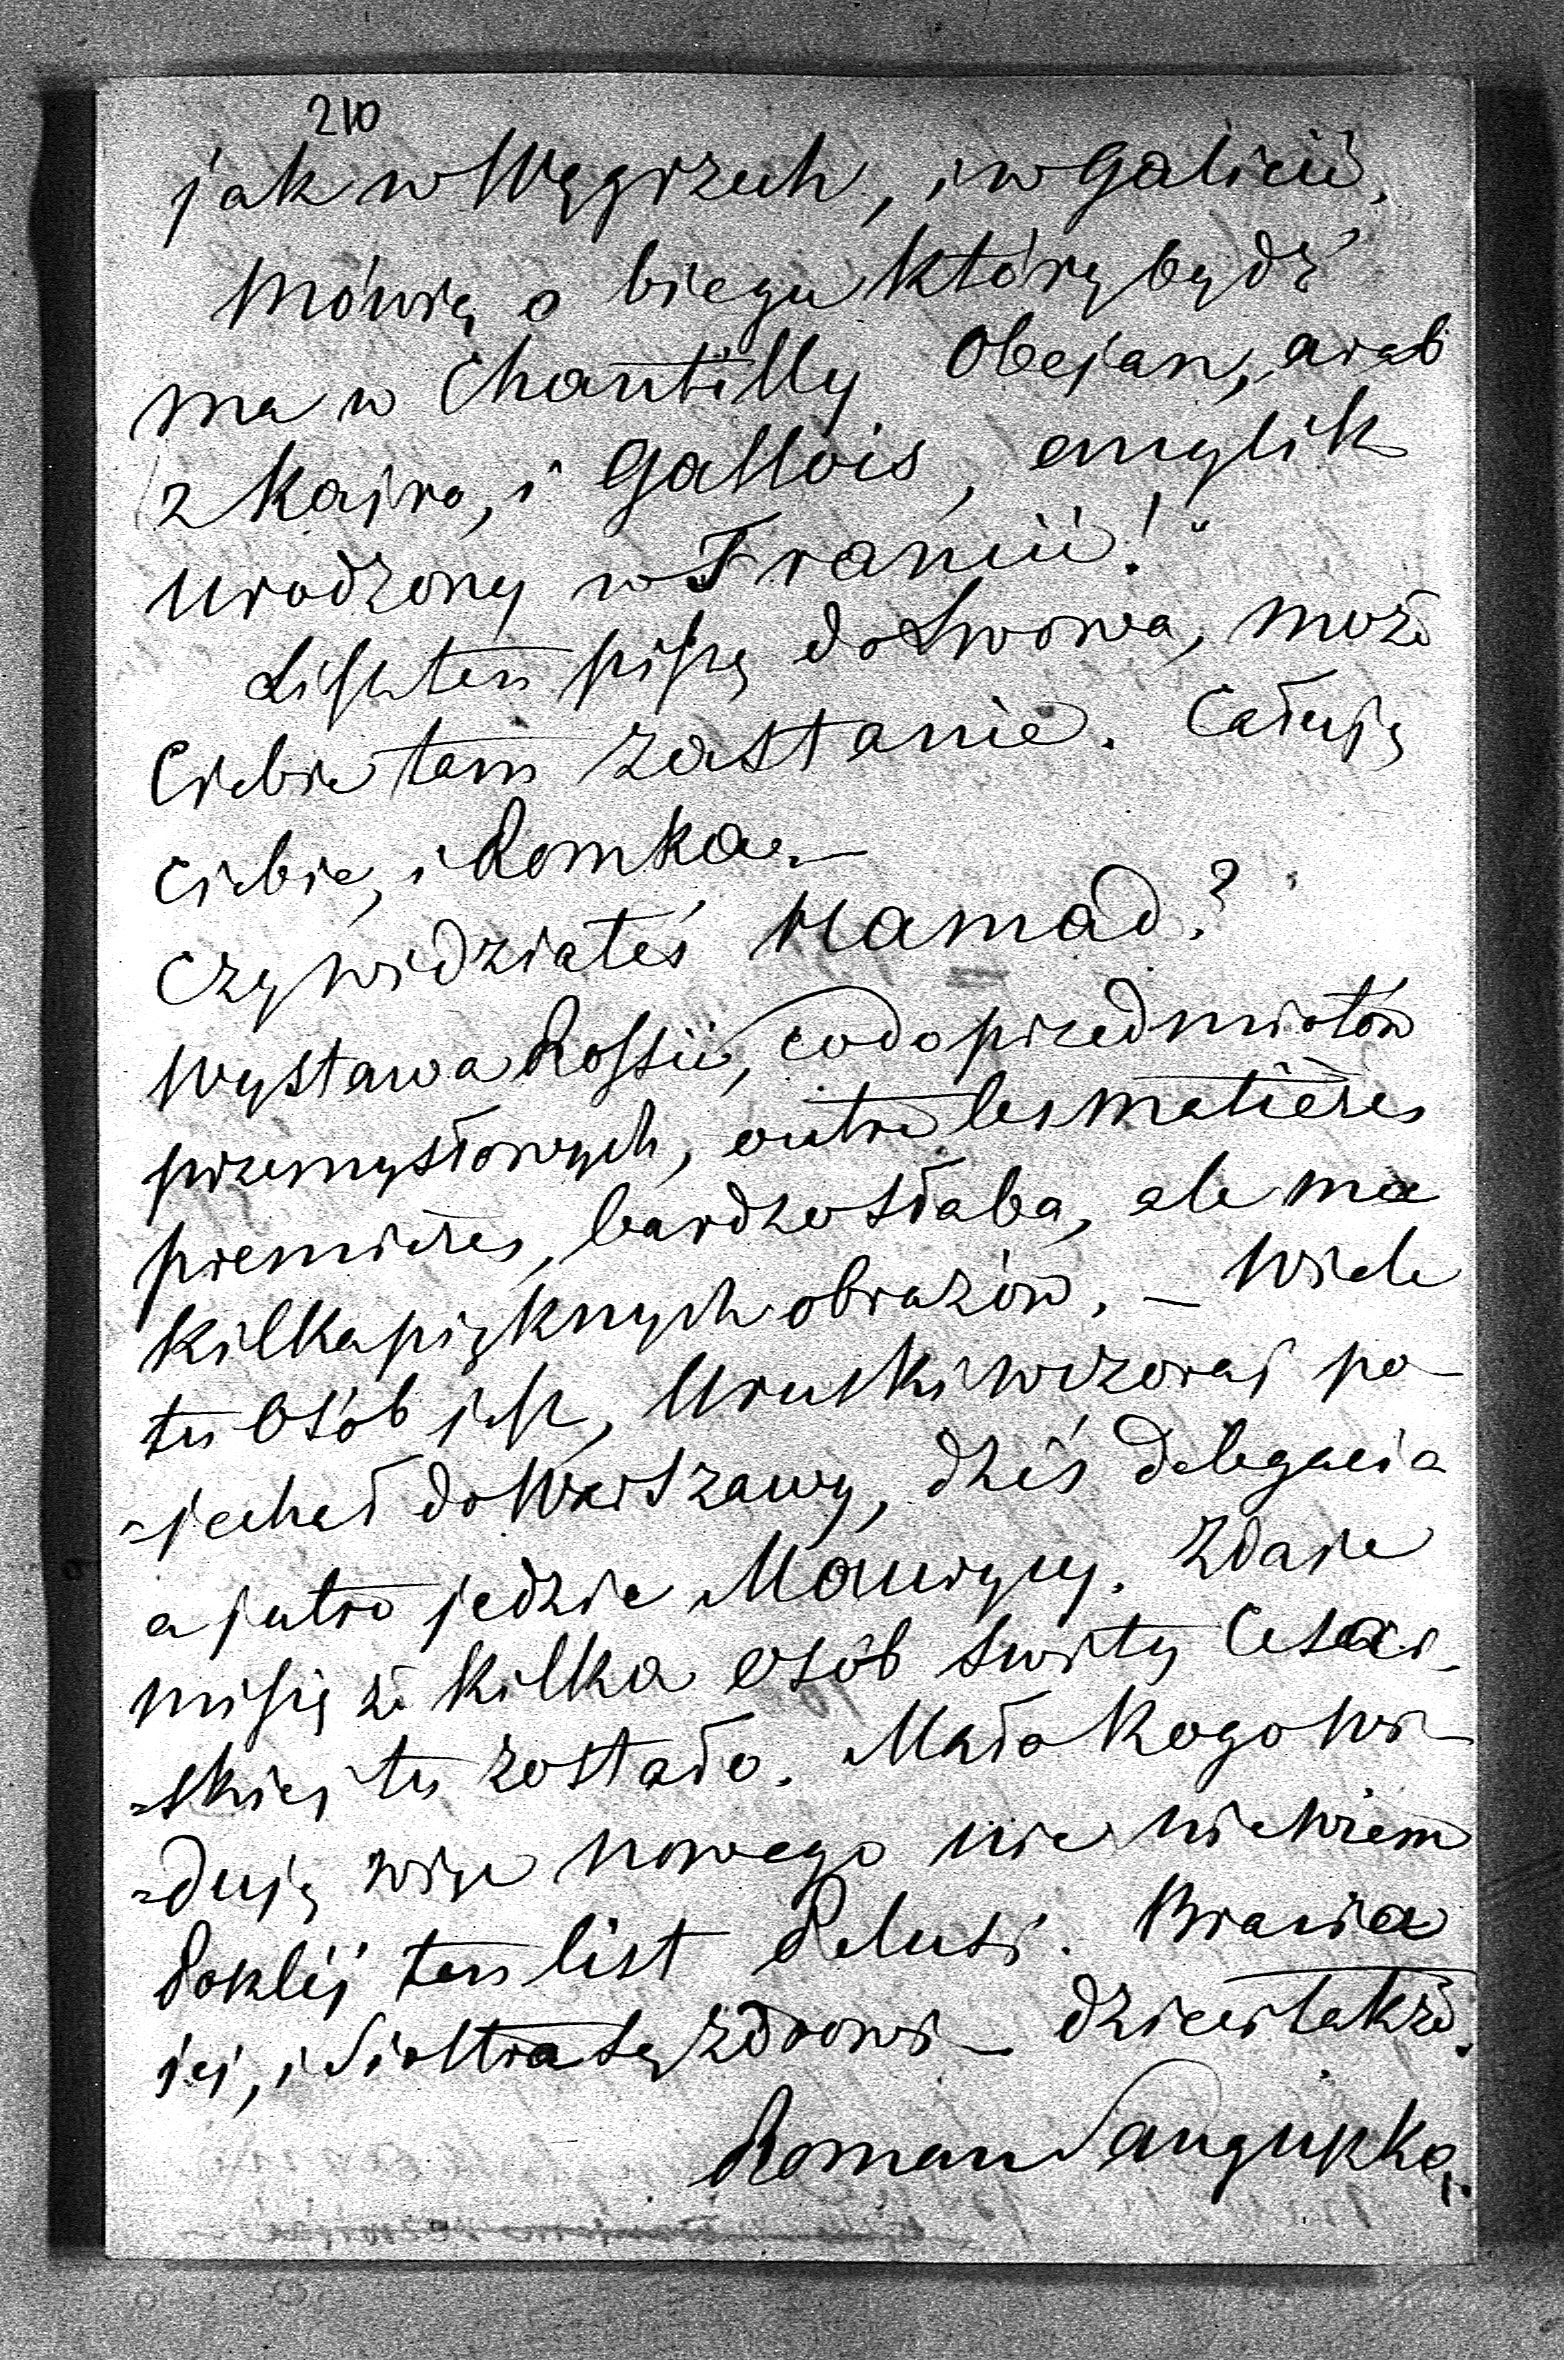 210
jak w Węgrzech, i w Galicii,
Mówią o biegu który będź
ma w Chantilly Obejan, arab
z Kairo, i Gallois, anglik
urodzony w Francii!
List ten piszę do Lwowa, może
Ciebie tam zastanie. Całuję
Ciebie, i Romka. —
Czy widziałeś Hamad?
Wystawa Rossii, co do przedmiotów
przemysłowych, outre les matières
premières, bardzo słaba, ale ma
kilka pięknych obrazów. — Wiele
tu osób jest, Uruski wczoraj po-
-jechał do Warszawy, dziś delegacia
a jutro jedzie Maurycy. Zdaje
mi się że kilka osób świty Cesar-
-skiej tu zostało. Mało kogo wi-
-duję więc nowego nic nie wiem
doklej ten list Helusi. Bracia
jej, i Siostra są zdrowi — dzieci także.
Roman Sanguszko